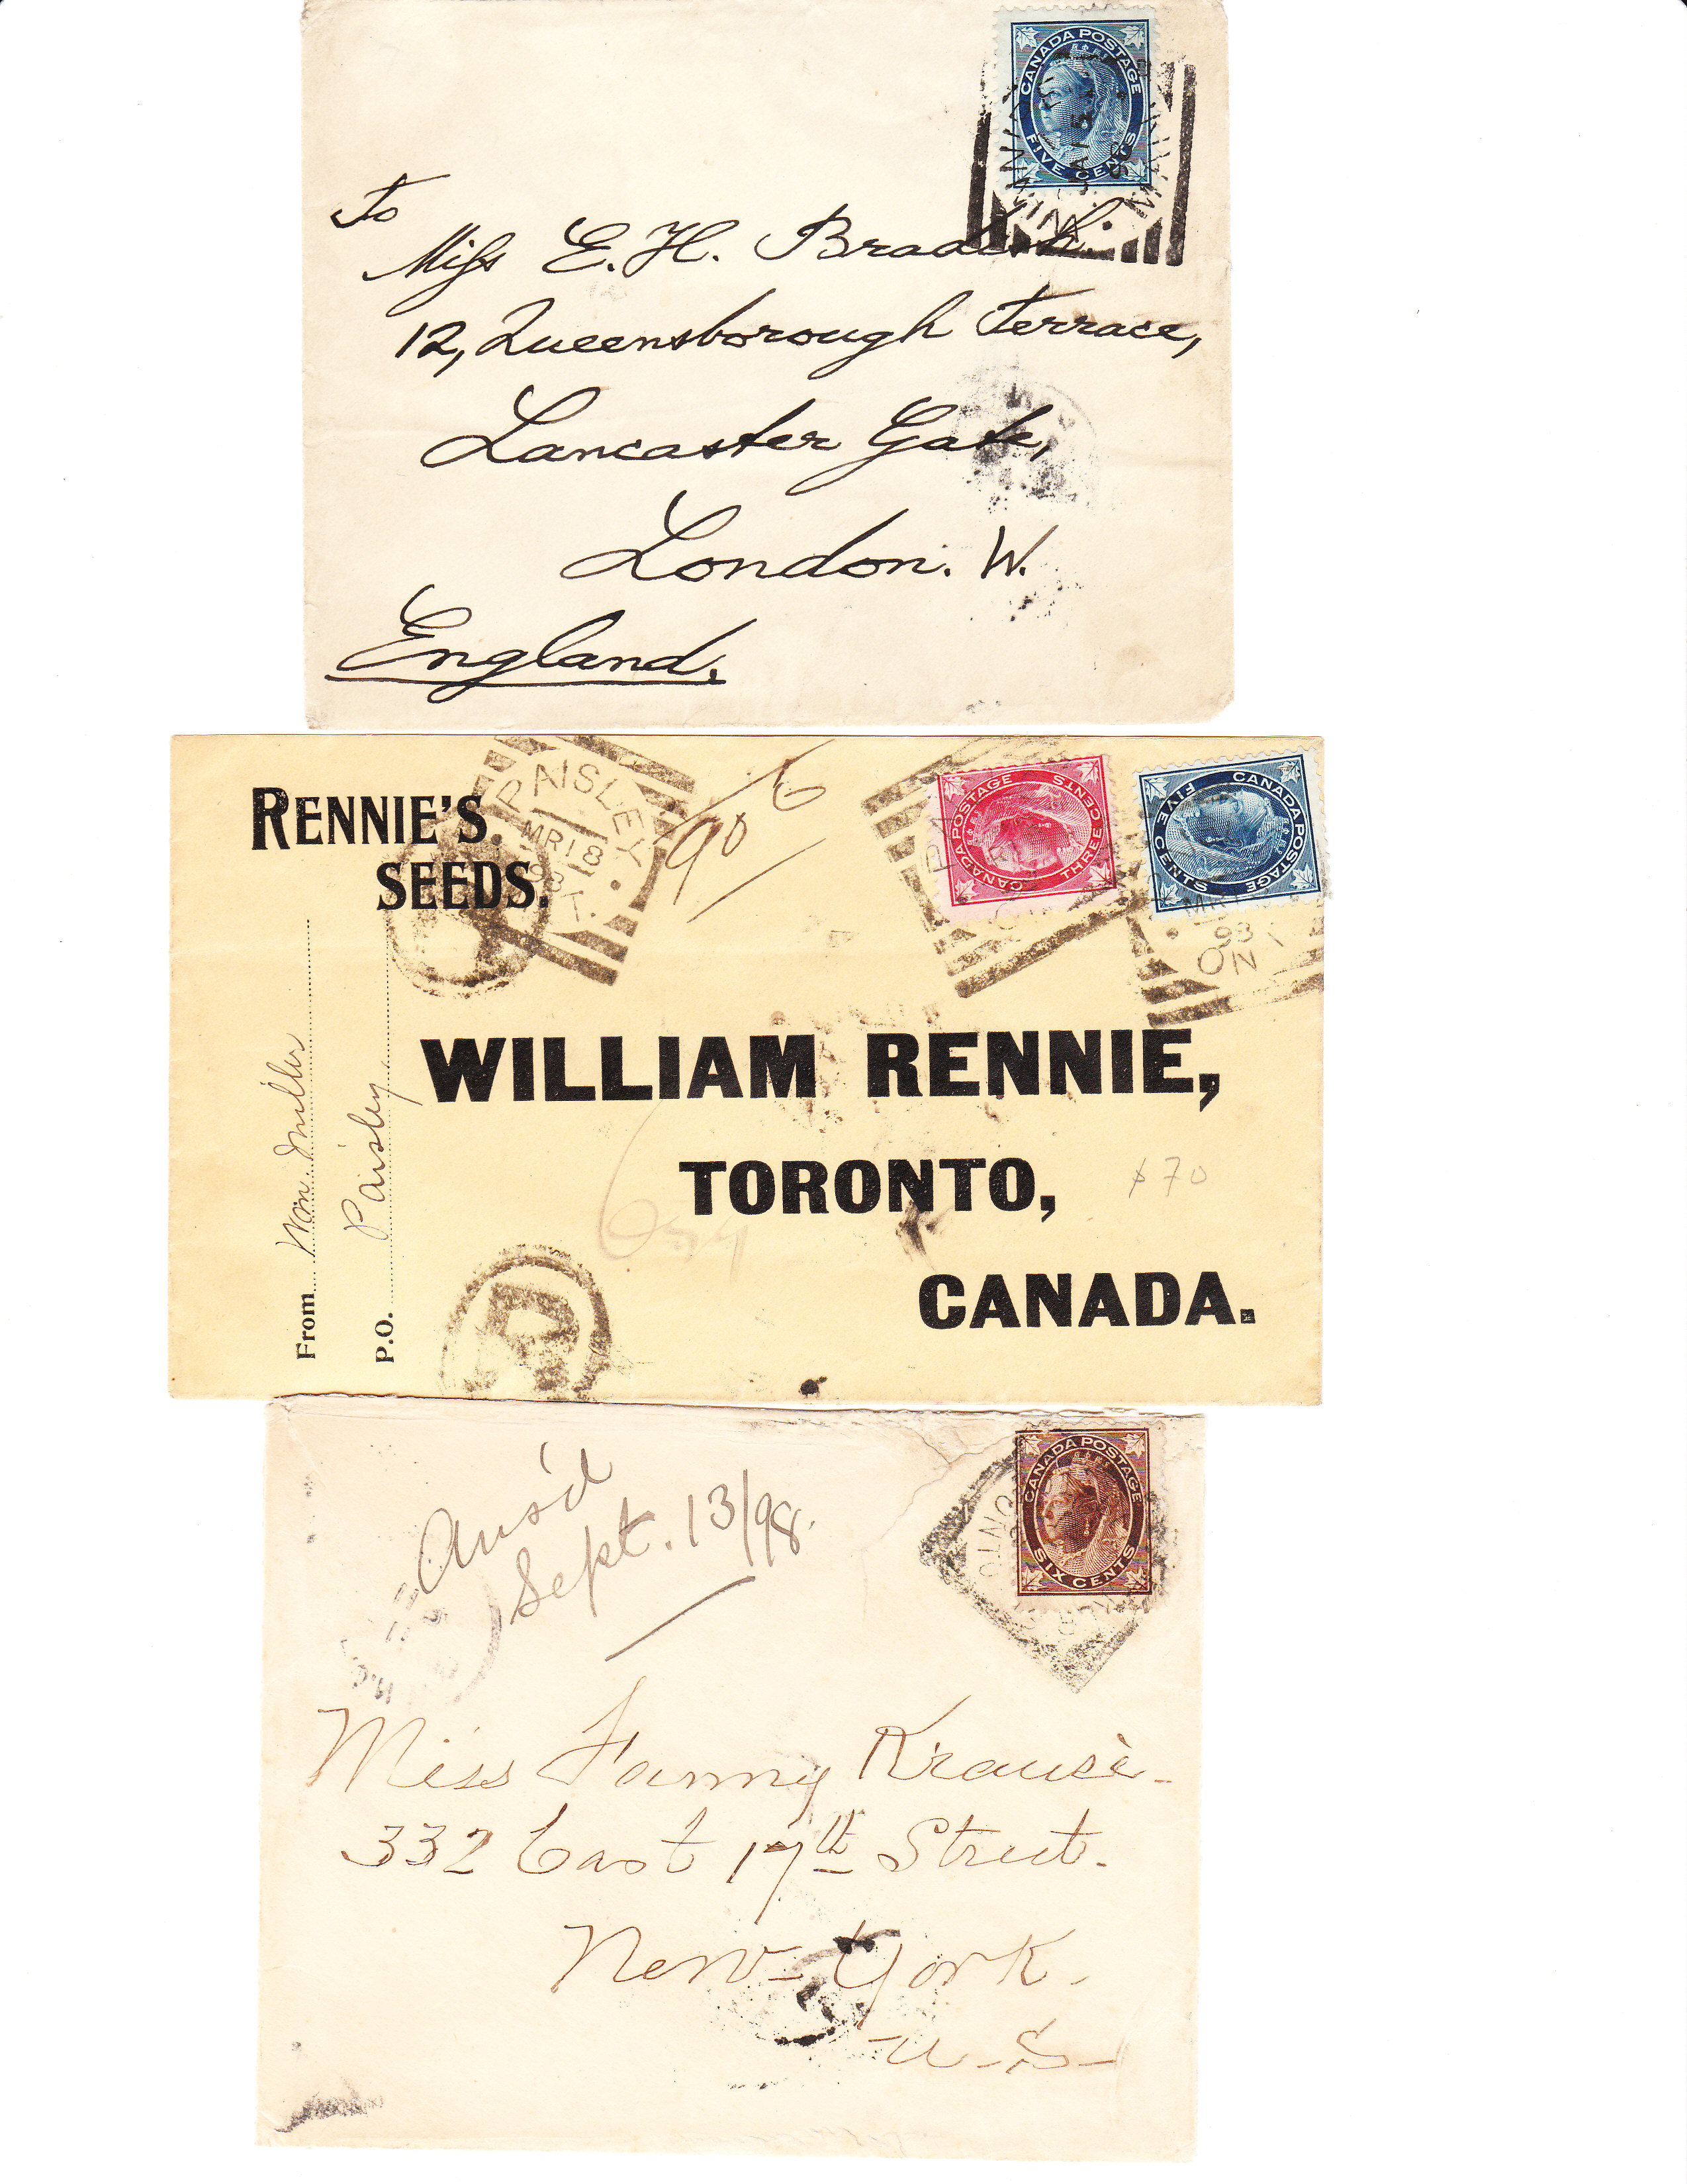 CANADA POSTAGE
FIVE CENTS
To
Miss E. H.
12, Queensborough Terrace,
Lancaster Gate,
London. W.
England.
RENNIE'S
SEEDS.
PAISLEY
MR 18
98
ONT.
90
6
CANADA POSTAGE
THREE CENTS
CANADA POSTAGE
FIVE CENTS
98
ON
From Wm. Miller
P.O. Paisley
WILLIAM RENNIE,
TORONTO,
$70
CANADA.
R
CANADA POSTAGE
SIX CENTS
Ans'd
Sept. 13/98.
Miss Fanny Krause
332 East 17th Street.
New-York.
U-S-